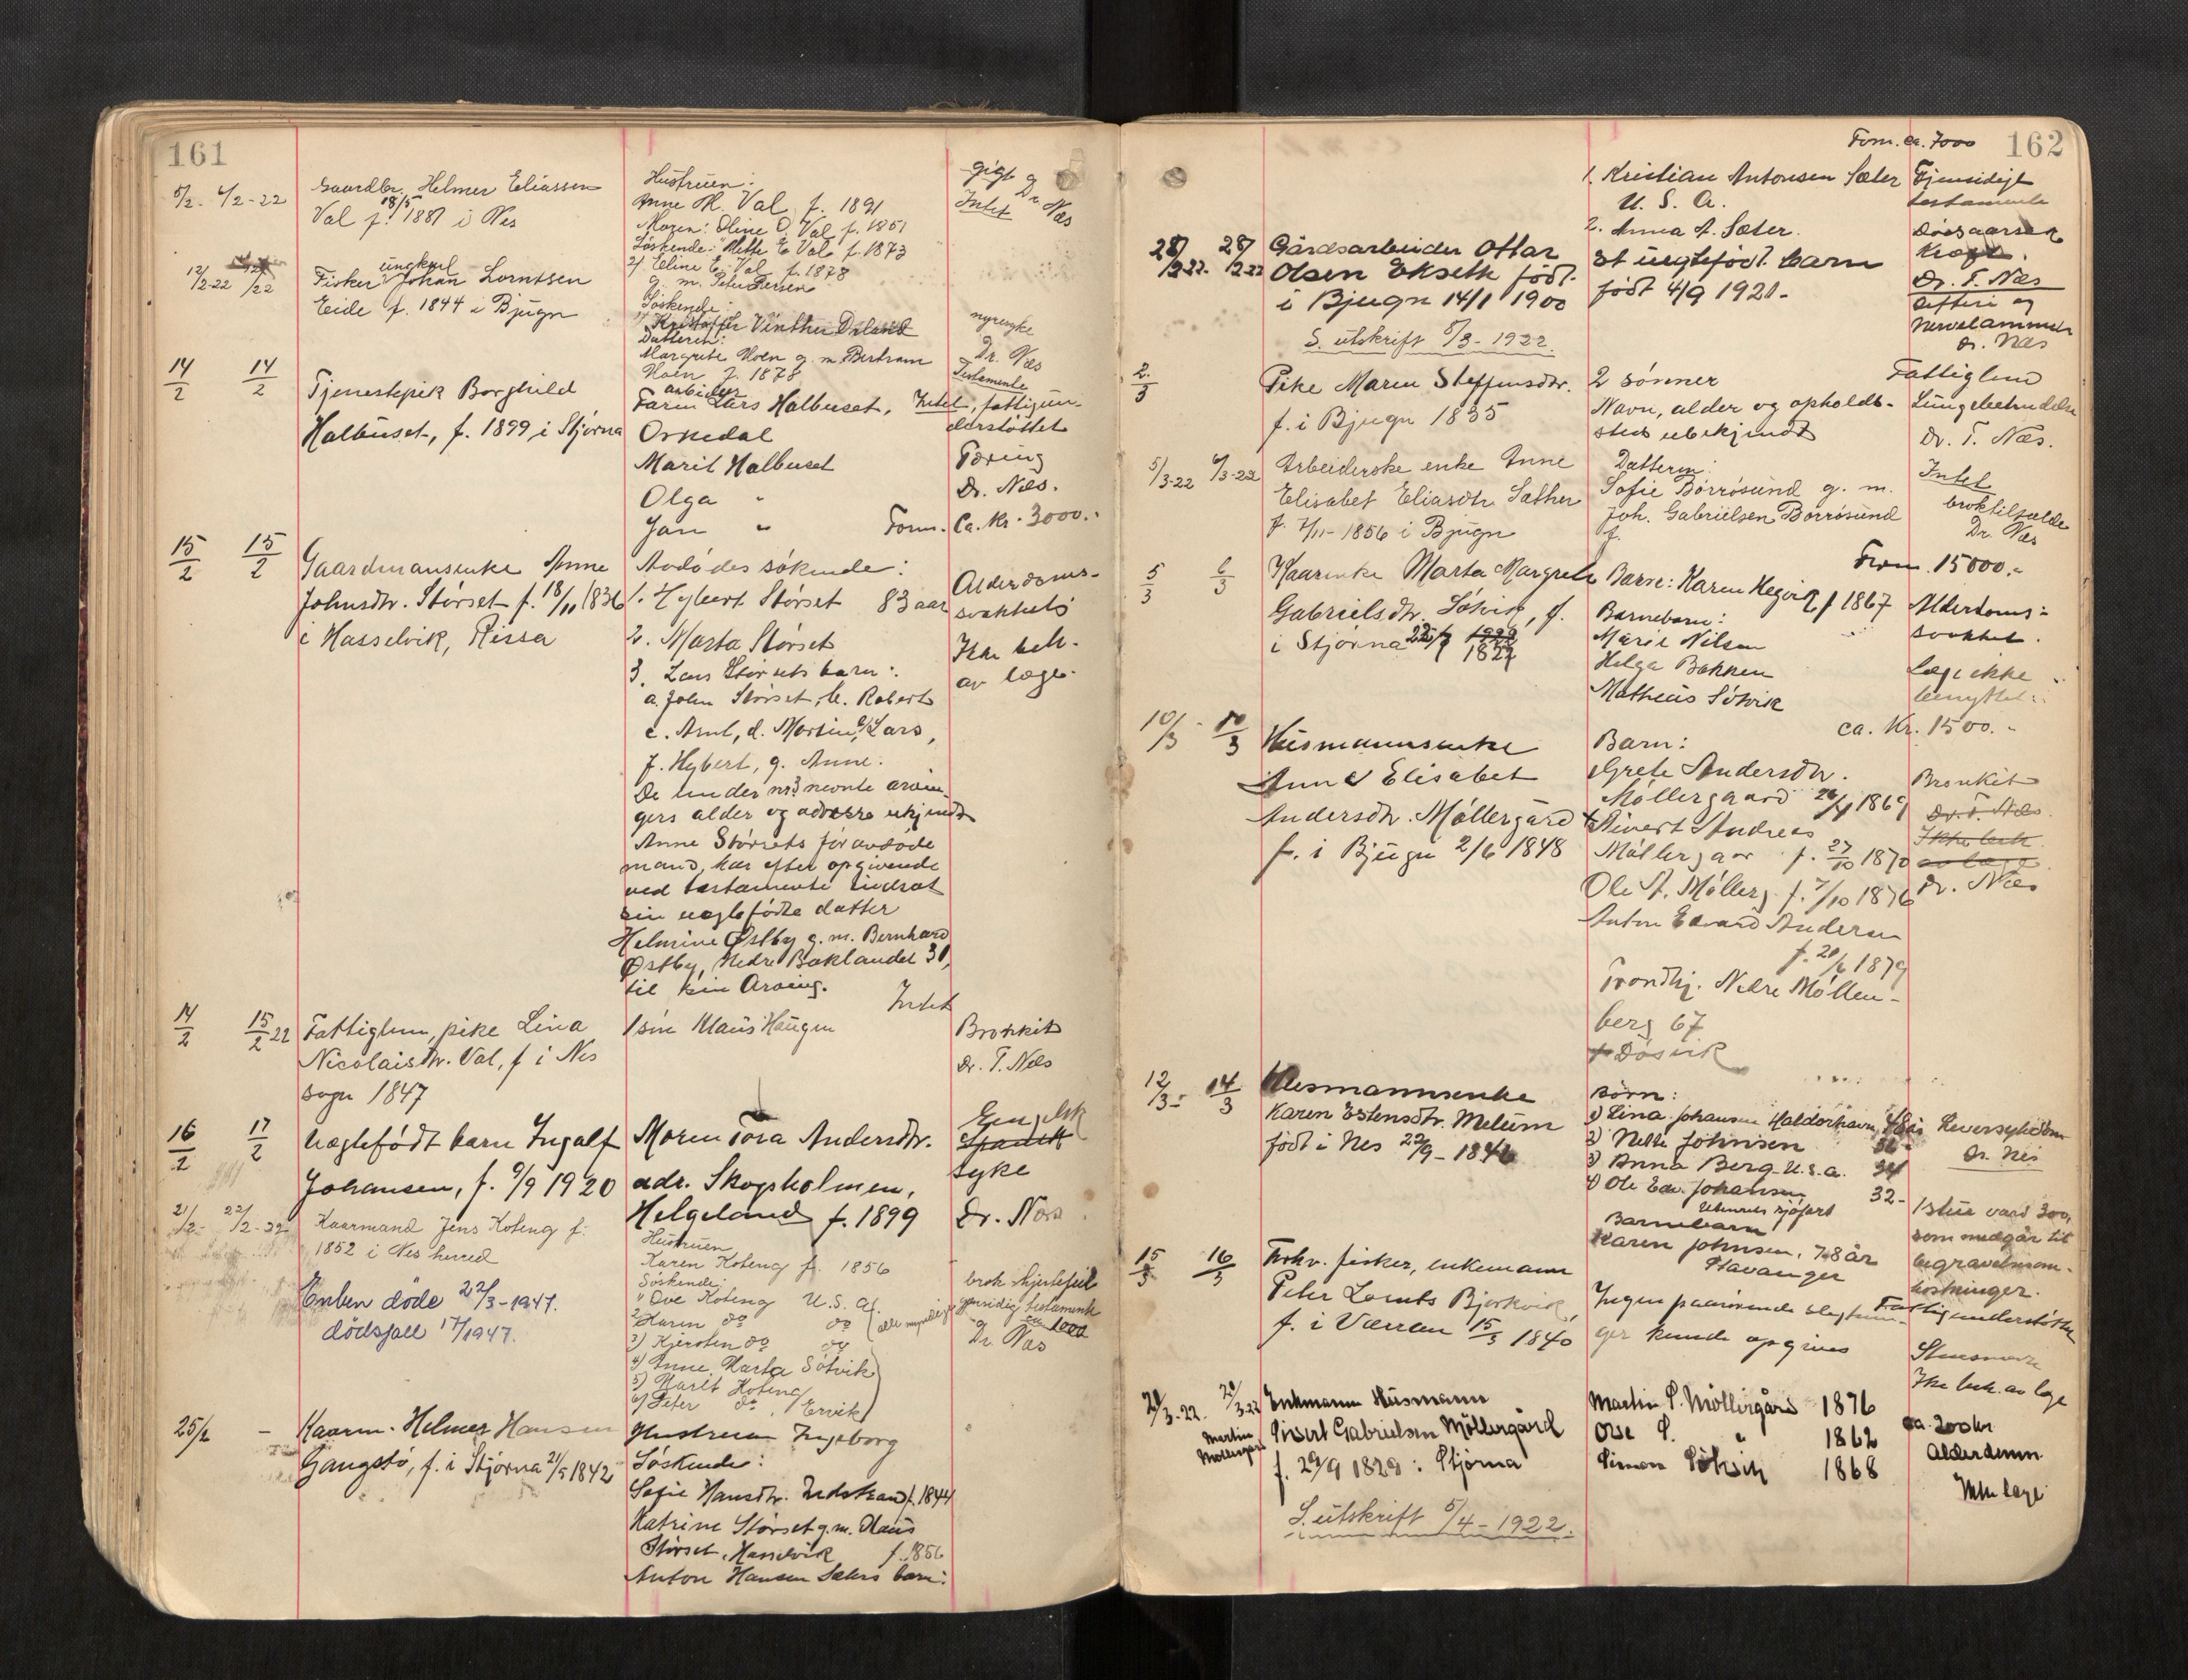 161
5/2. 6/2-22
Gaardbr. Helmer Eliassen
Val f. 18/5 1887 i Nes
Hustruen:
Anne M. Val f. 1891
Moren: Oline O. Val f. 1851
Søskende: 1) Mette E. Val f. 1873
2) Eline E. Val f. 1878
g. m. Peter Iversen
gigt
Intet
Dr. Næs
12/2-22 12/2 22
Fisker ungkarl Johan Lorntsen
Eide f. 1844 i Bjugn
Søskende:
1) Kristoffer Vinther
Datteren:
Margrete Hoen g. m. Bertram
Hoen f. 1878
nyresyke
Dr. Næs
Testamente
14/2 14/2
Tjenestepik Borghild
Halbuset, f. 1899 i Stjørna
Faren arbeider Lars Halbuset,
Orkedal
Marit Halbuset
Olga "
Jan "
Intet, fattigun-
derstøttet
Tæring
Dr. Næs.
Form. Ca. Kr. 3000.-
15/2 15/2
Gaardmansenke Anne
Johnsdtr. Størset f. 18/11 1836
i Hasselvik, Rissa
Avdødes søkende:
1. Hybert Størset 83 aar
2. Marta Størset
3. Lars Størsets barn:
a. John Størset, b. Robert
c. Arnt, d. Martin, e. Lars,
f. Hybert, g. Anne.
De under nr. 3 nevnte arvin-
gers alder og adresse ukjendt
Anne Størsets før avdøde
mand, har efter opgivende
ved testamente indsat
sin uegtefødte datter
Helmine Østby g. m. Bernhard
Østby, Nedre Baklandet 31,
til sin Arving.
Alderdoms-
svakhet
Ikke beh.
av læge.
14/2 15/2 22
Fattiglem, pike Lina
Nicolaisdtr. Val, f i Nes
sogn 1847
1 søn Klaus Haugen
Intet
Bronkit
Dr. T. Næs
16/2 17/2
Uegtefødt barn Ingolf
Johansen, f. 9/9 1920
Moren Tora Andersdtr.
adr. Skogsholmen,
Helgeland f. 1899
Engelsk
Spansk
syke
Dr. Næs
21/2- 22/2-22
Kaarmand Jens Koteng f.
1852 i Nes herred
Enken døde 22/3-1947.
dødsfall 17/1947.
Hustruen
Karen Koteng f. 1856
Søskende:
1) Ove Koteng U. S. A.
2) Karen do do
3) Kjersten do do
4) Anne Marta Søtvik
5) Marit Koteng
6) Peter do, Ervik
alle myndige
brok hjertefeil
gjensidig testamente
ca 1000
Dr. Næs
25/2 -
Kaarm. Helmer Hansen
Gangstø, f. i Stjørna 21/5 1842
Hustruen Ingeborg
Søskende:
Sofie Hansdtr. Indstrand f. 1844
Katrine Størset g. m. Klaus
Størset, Hasselvik f. 1856
Anton Hansen Sæters barn:
162
Form. ca. 7000
1. Kristian Antonsen Sæter
U. S. A.
2. Anna A. Sæter.
Gjensidigt
testamente
Dødsaarsak
Kræft.
Dr. T. Næs
28/2 22. 28/2 22
Gårdsarbeider Ottar
Olsen Ekseth født.
i Bjugn 14/1 1900
S. utskrift 8/3 - 1922.
et uegtefødt barn
født 4/9 1921.
Difteri og
nervelammelse
Dr. Næs
2./3
Pike Maren Steffensdtr.
f. i Bjugn 1835
2 sønner
Navn, alder og opholds-
sted ubekjendt
Fattiglem
Lungebetendelse
Dr. T. Næs.
5/3-22 6/3-22
Arbeiderske enke Anne
Elisabet Eliasdtr Sæther
f. 7/11-1856 i Bjugn
Datteren:
Sofie Borrøsund g. m.
Joh. Gabrielsen Borrøsund
f.
Intet
broktilfælde
Dr. Næs
5/3 6/3
Kaarenke Marta Margrete
Gabrielsdtr. Søtvik, f.
i Stjørna
Barn: Karen Hegvik f 1867
Barnebarn:
Marie Nilsen
Helga Bakken
Mathæus Søtvik
Form. 15000.-
Alderdoms-
svakhet.
Læge ikke
benyttet.
10/3 - 10/3
Husmannsenke
Anne Elisabet
Andersdtr. Møllergård
f. i Bjugn 2/6 1848
Barn:
Grete Andersdtr.
Møllergaard 1869
Sivert Andreas
Møllergaar f. 27/10 1870
Ole A. Møllerg f. 7/10 1876
Anton Edvard Andersen
f. 20/6 1879
Trondhj. Nedre Møllen-
berg 67
Døsvik
ca. Kr. 1500.-
Bronkit
Dr. T. Næs
Ikke beh.
av læge
Dr. Næs
12/3 - 14/3
Husmannsenke
Karen Estensdtr. Melum
født i Nes 22/9 - 1846
Børn:
1) Lina Johansen Haldorhavn,
2) Nelle Johnsen 36
3) Anna Berg U. S. A. 34
4) Ole Edv. Johansen 32-
Utenriks sjøfart
Barnebarn
Karen Johnsen, 78 år
Stavanger
Leversykdom
Dr. Nes
1 stue værd 300,
som medgår til
begravelsesom-
kostninger.
15/3 16/3
Forhv. fisker, enkemann
Peter Lornts Bjørkvik
f. i Værran 15/3 1840
Ingen paarørende slegtnin-
ger kunde opgives
Fattigunderstøttet
Ikke beh. av læge
21/3-22. 21/3-22
Martin
Møllergård
Enkmann Husmann
Sivert Gabrielsen Møllergård
f. 29/9 1829 i Stjørna
S. utskrift 5/4 - 1922.
Martin S. Møllergård 1876
Ose S. " 1862
Simon Søtvik 1868
ca. 200 kr
Alderdomm
Ikke læge